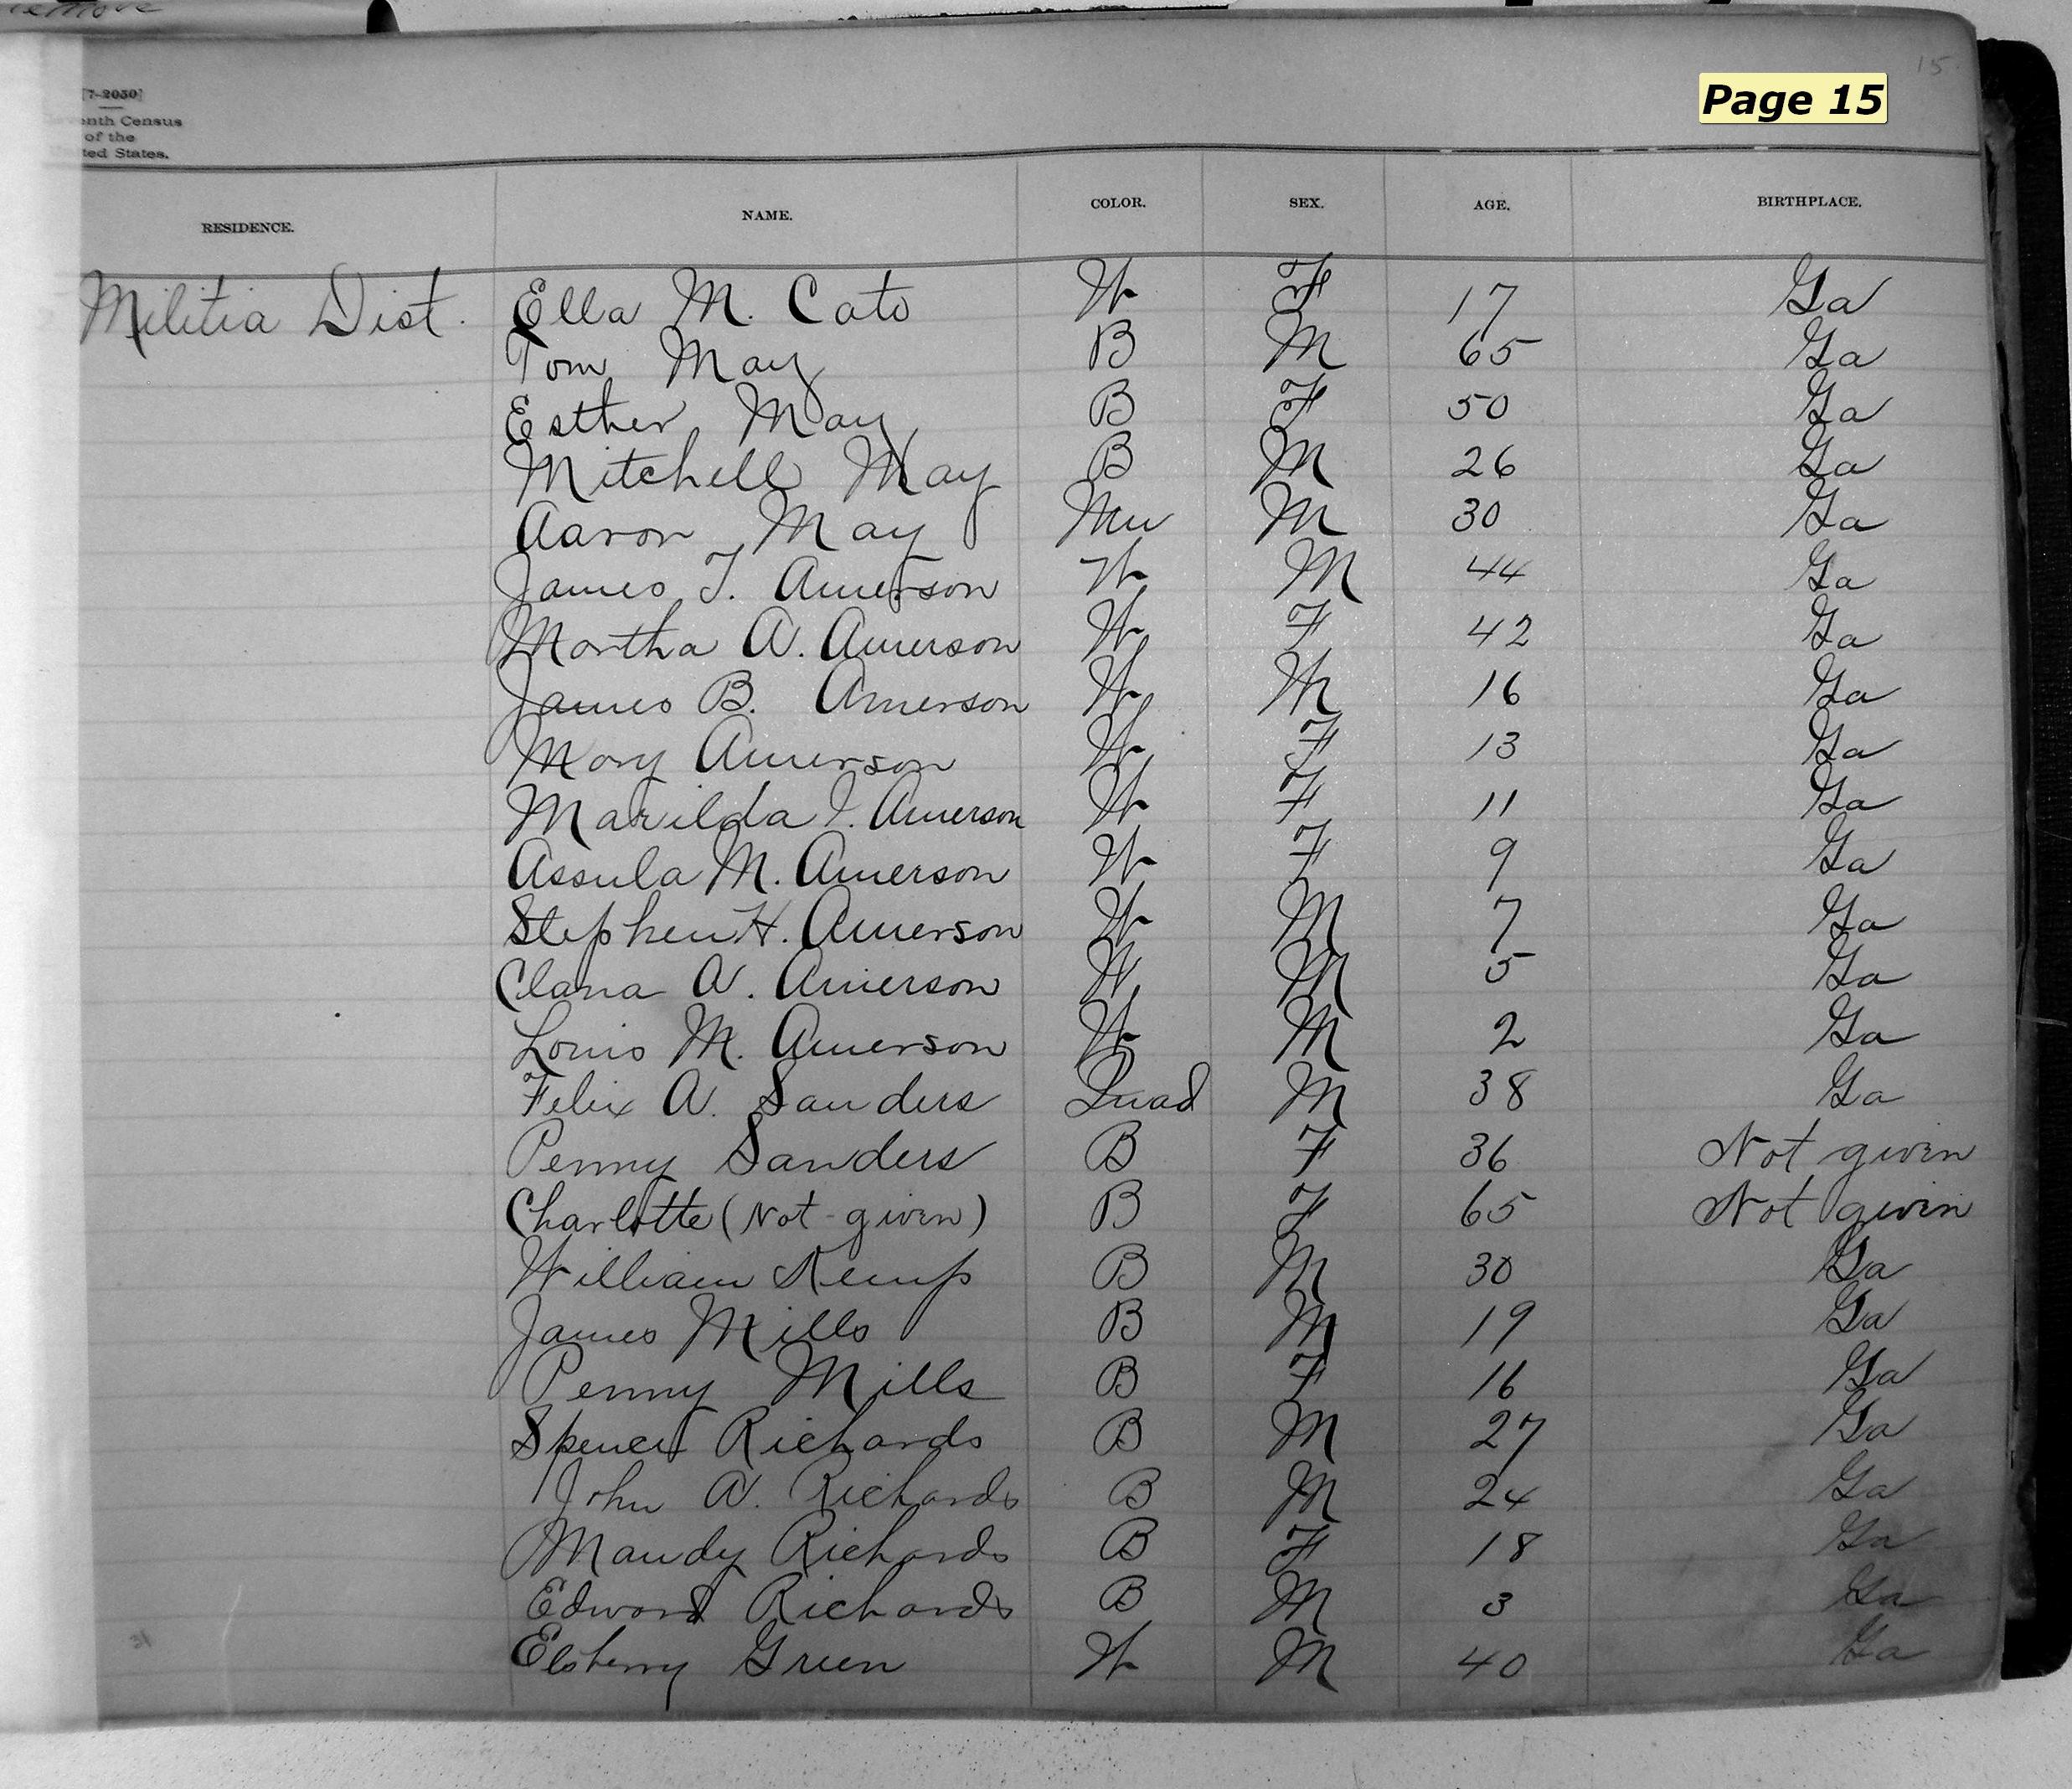 Page 15
15
[7–2050]
Census
of the
States.
RESIDENCE. NAME. COLOR. SEX. AGE. BIRTHPLACE.
Militia Dist. Ella M. Cato W F 17 Ga
Tom May B M 65 Ga
Esther May B F 50 Ga
Mitchell May B M 26 Ga
Aaron May Mu M 30 Ga
James T. Amerson W M 44 Ga
Martha A. Amerson W F 42 Ga
James B. Amerson W M 16 Ga
Mary Amerson W F 13 Ga
Marilda I. Amerson W F 11 Ga
Assula M. Amerson W F 9 Ga
Stephen H. Amerson W M 7 Ga
Clana A. Amerson W M 5 Ga
Louis M. Amerson W M 2 Ga
Felix A. Sanders Quad M 38 Ga
Penny Sanders B F 36 Not given
Charlotte (Not given) B F 65 Not given
William Kemp B M 30 Ga
James Mills B M 19 Ga
Penny Mills B F 16 Ga
Spencer Richards B M 27 Ga
John A. Richards B M 24 Ga
Mandy Richards B F 18 Ga
Edward Richards B M 3 Ga
Elsberry Green W M 40 Ga